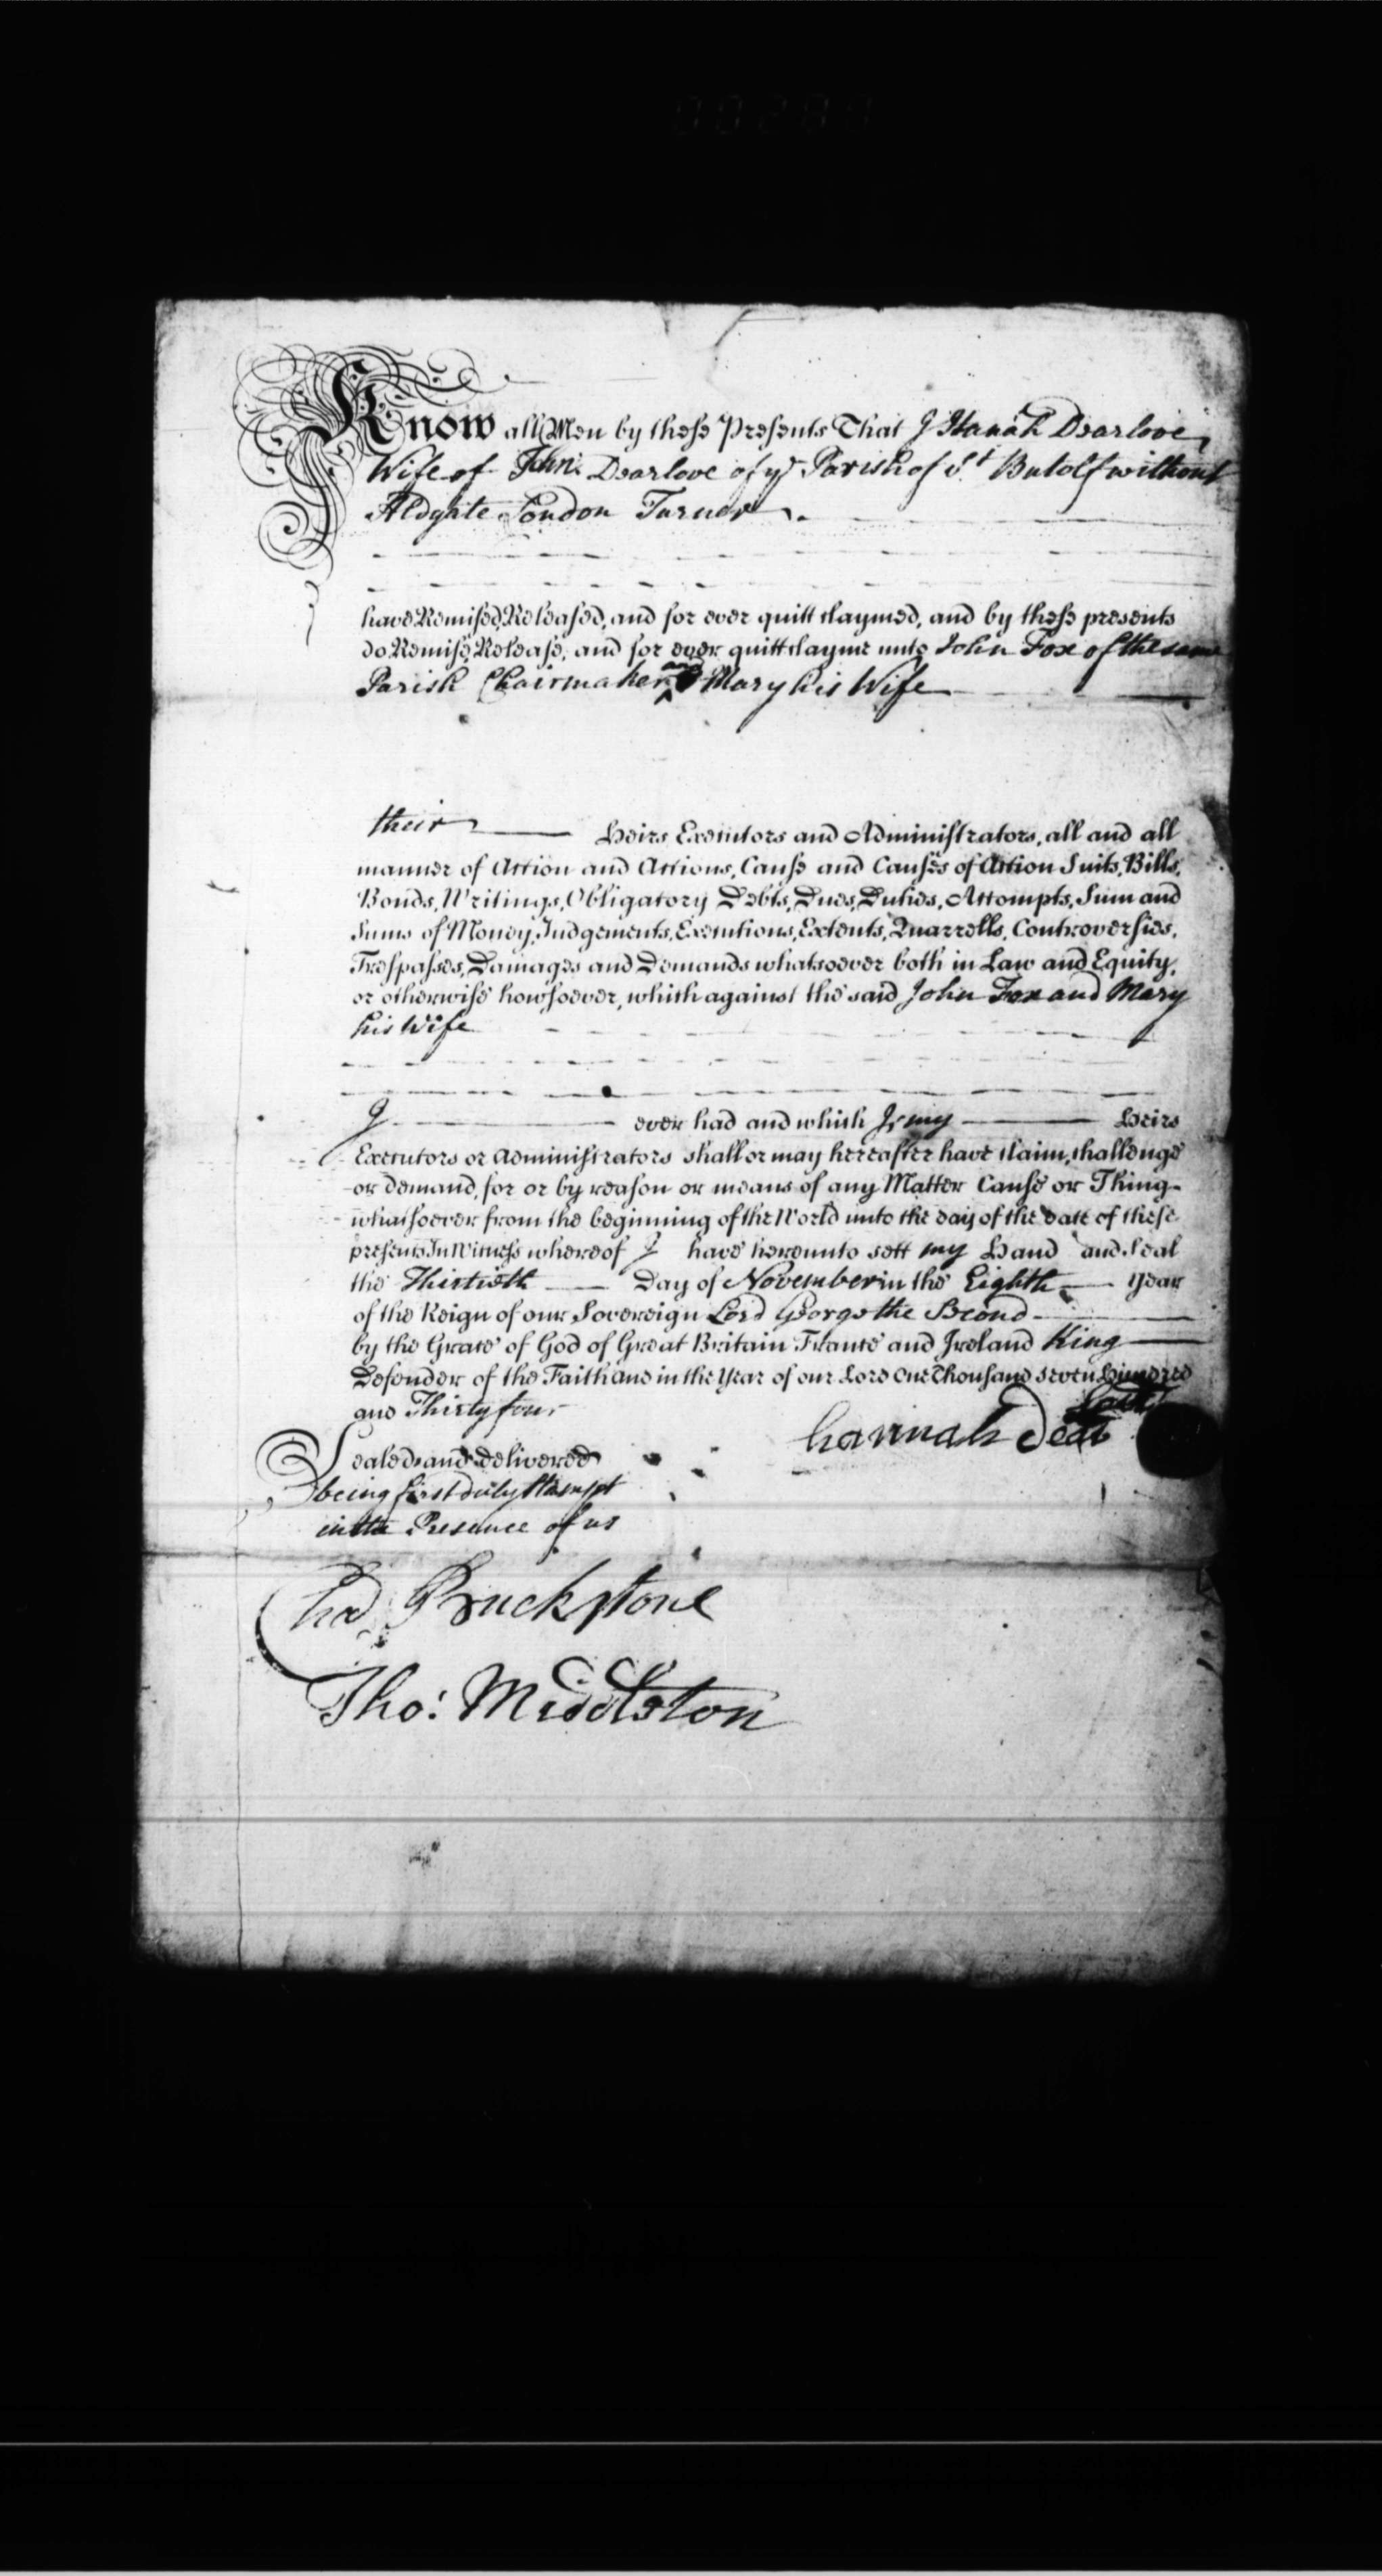 Know all Men by these Presents That I Hanah Dearlove
Wife of John Dearlove of ye Parish of St. Butolf without
Aldgate London Turner
have Remised, Released, and for ever quitt claymed, and by these presents
do Remise, Release, and for ever quitt clayme unto John Fox of the same
Parish Chairmaker and Mary his Wife
their Heirs Executors and Administrators, all and all
manner of Action and Actions, Cause and Causes of Action Suits, Bills,
Bonds, Writings, Obligatory Debts, Dues, Duties, Attompts, Sum and
Sums of Money, Judgements, Executions, Extents, Quarrells, Controversies,
Trespasses, Damages and Demands whatsoever both in Law and Equity,
or otherwise howsoever, which against the said John Fox and Mary
his Wife
I ever had and which I, my Heirs
Executors or Administrators shall or may hereafter have claim, challenge
or demand, for or by reason or means of any Matter Cause or Thing
whatsoever from the beginning of the World unto the day of the date of these
presents In Witness whereof I have hereunto sett my Hand and Seal
the Thirtieth Day of November in the Eighth year
of the Reign of our Sovereign Lord George the Second
by the Grace of God of Great Britain France and Ireland King
Defender of the Faith and in the Year of our Lord One Thousand seven Hundred
and Thirty four
hannah
Sealed and delivered
being first duly stampt
in the Presence of us
Buckstone
Tho: Middleton